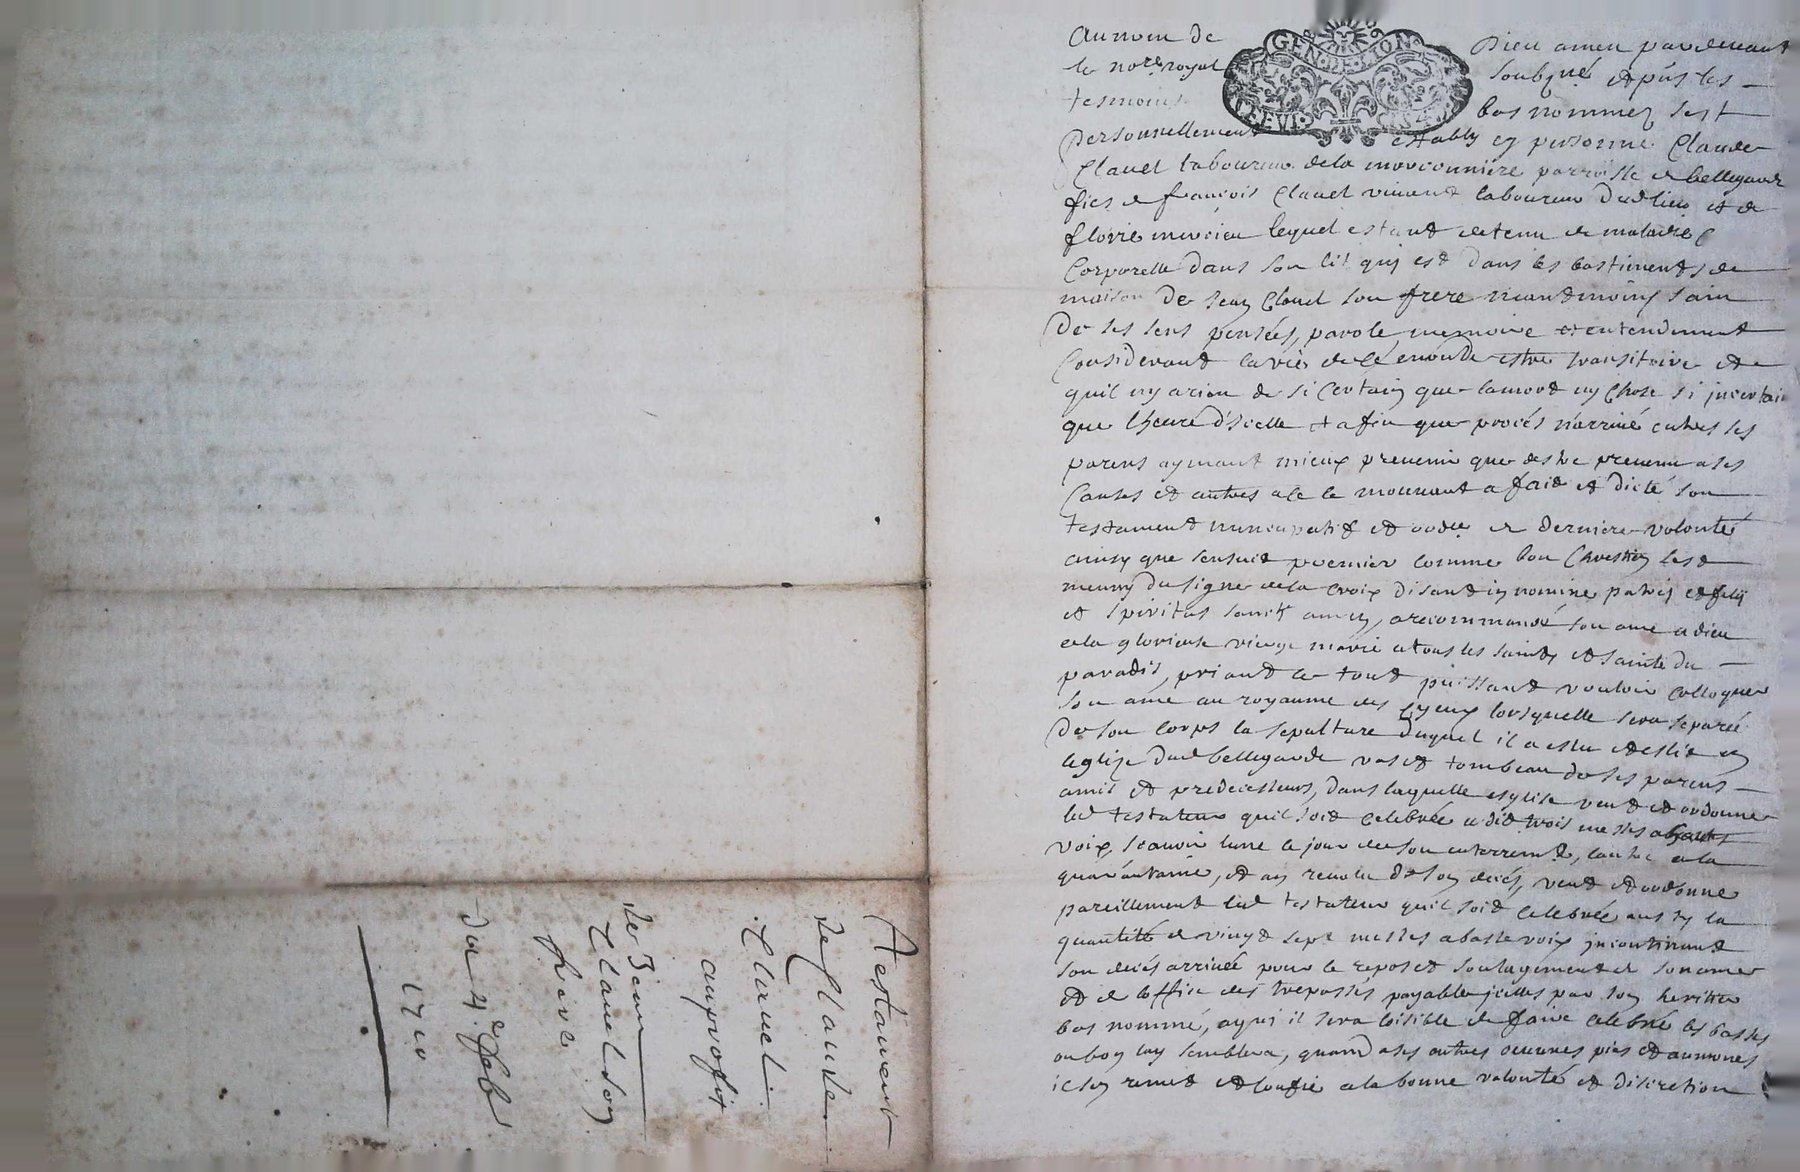 Au nom de Dieu amen pardevant
le nore royal soubzné et pñs les
tesmoins bas nommez sest
personnellement estably en personne Claude
Clauel laboureur de la parroisse de bellegarde
fils de françois Clauel vivant laboureur dud lieu et de
florie lequel estant detenu de maladie
Corporelle dans son lit quy est dans les bastiments de
maison de Jean Clauel son frere neantmoings sain
De ses sens pensées, parole memoire et entendement
Considerant la vie de ce monde estre transitoire et
quil ny a rien de si Certain que la mort ny Chose si incertain
que lheure d'icelle et afin que procés n'arrive entres ses
parens aymant mieux prevenir que destre prevenu a ses
Causes et autres a ce le mouvant a fait et dicté son
testament nuncupatif et de derniere volonté
ainsy que sensuit premier comme bon Chrestien sest
muny du signe de la Croix disant in nomine patris et filij
et spiritus sancti amen, a recommandé son ame a dieu
a la glorieuse vierge marie a tous les saints et sainte du
paradis, priant le tout puissant vouloir colloquer
son ame au royaume des Cyeux lorsquelle sera separée
De son corps la sepulture duquel il a eslu et eslit en
leglize dud bellegarde vas et tombeau de ses parens
amis et predecesseurs, dans laquelle esglise veut et ordonne
led testateur quil soit celebrée a dit trois messes a hautes
voix, scavoir lune le jour de son enterremt, lautre a la
quarantaine, et an revolu de son decés, veut et ordonne
pareillement led testateur quil soit celebrée aussy la
quantité de vingt sept messes a basse voix incontinent
son decés arrivée pour le repos et soulagement de son ame
et de loffice des trepassés payable icelles par son heritier
bas nommé, a qui il sera loisible de faire celebré les basses
ou bon luy semblera, quand a ses autres oeuvres pies et aumones
il sen remet et confie a la bonne volonté et discretion
GEN·DE·LYON
Testament
de Claude
Clauel
au profit
de Jean
Clauel son
frere
Du 4e feb
1710